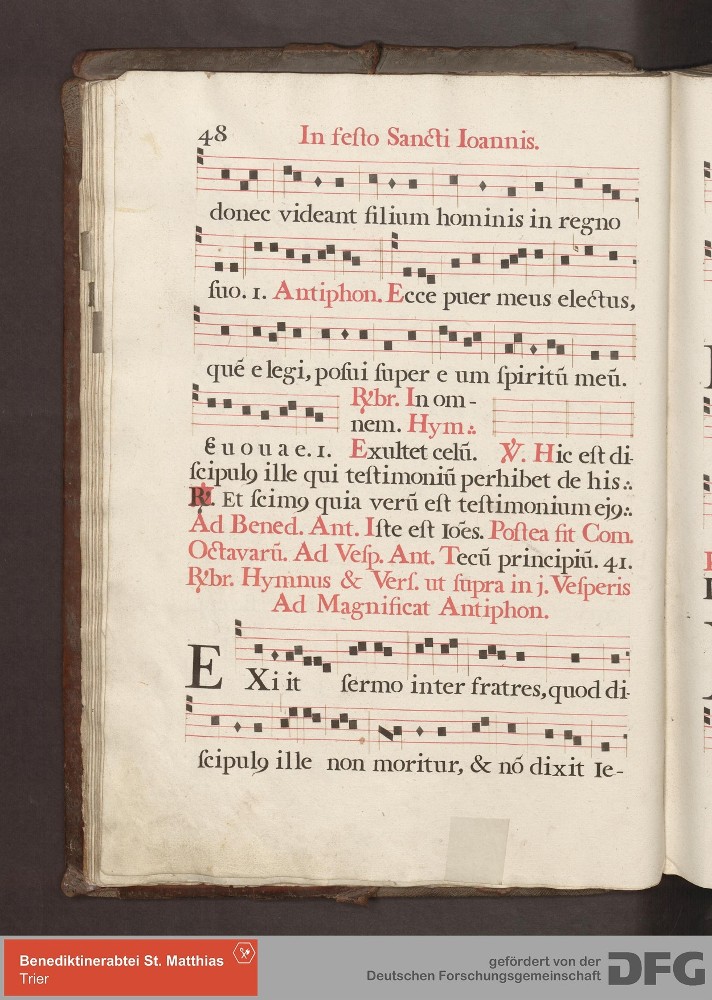 48 In feſto Sancti Ioannis.
donec videant filium hominis in regno
ſuo. 1. Antiphon. Ecce puer meus electus,
quē elegi, poſui ſuper eum ſpiritū meū.
R̸br. In om-
nem. Hym.:
Euouae. 1. Exultet celū. V̸. Hic eſt di-
ſcipulꝯ ille qui teſtimoniū perhibet de his.:
R̸. Et ſcimꝯ quia verū eſt teſtimonium ejꝯ.:
Ad Bened. Ant. Iſte eſt Ioēs. Poſtea fit Com.
Octavarū. Ad Veſp. Ant. Tecū principiū. 41.
R̸br. Hymnus & Verſ. ut ſupra in j. Veſperis
Ad Magnificat Antiphon.
EXiit ſermo inter fratres, quod di-
ſcipulꝯ ille non moritur, & nō dixit Ie-
Benediktinerabtei St. Matthias
Trier
gefördert von der
Deutschen Forschungsgemeinschaft
DFG